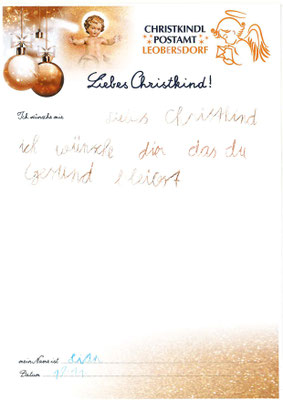 CHRISTKINDL
POSTAMT
LEOBERSDORF
Liebes Christkind!
Ich wünsche mir
liebes Christkind
ich wünsche dir das du
Gesund bleibst
mein Name ist
Datum